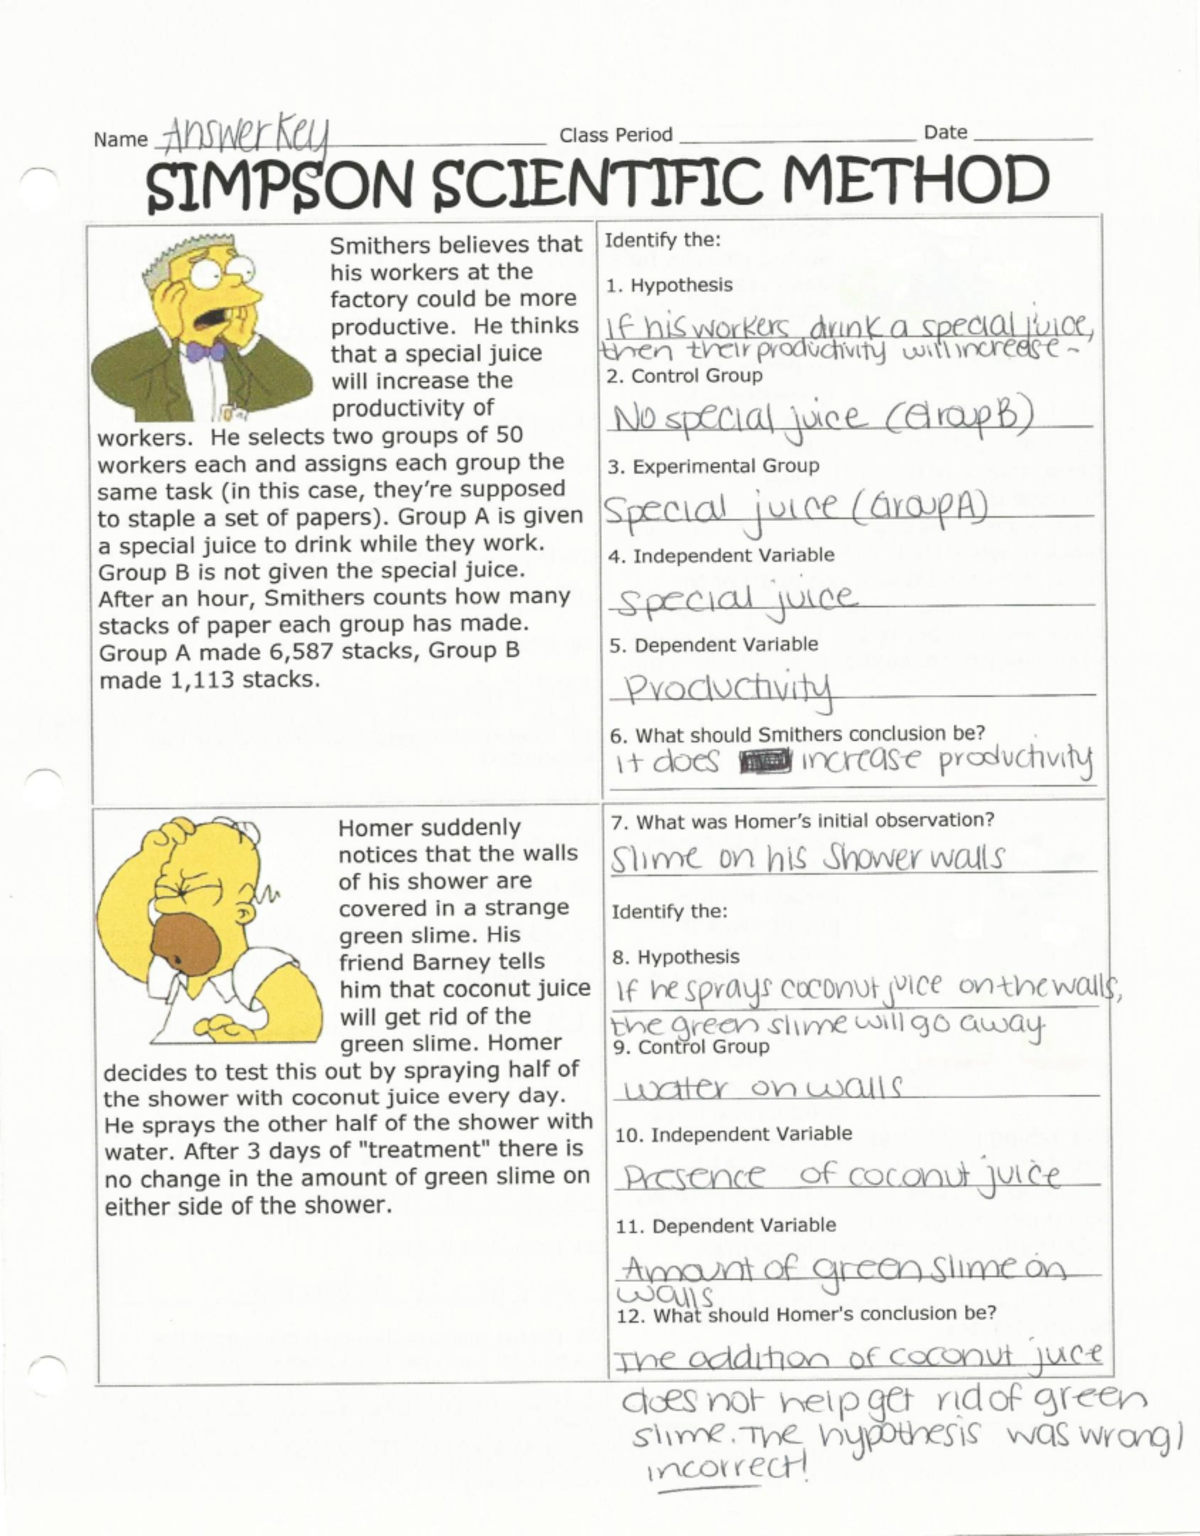 Name Answer Key Class Period Date
SIMPSON SCIENTIFIC METHOD
Smithers believes that
his workers at the
factory could be more
productive. He thinks
that a special juice
will increase the
productivity of
workers. He selects two groups of 50
workers each and assigns each group the
same task (in this case, they're supposed
to staple a set of papers). Group A is given
a special juice to drink while they work.
Group B is not given the special juice.
After an hour, Smithers counts how many
stacks of paper each group has made.
Group A made 6,587 stacks, Group B
made 1,113 stacks.
Identify the:
1. Hypothesis
If his workers drink a special juice,
then their productivity will increase.
2. Control Group
No special juice (Group B)
3. Experimental Group
Special juice (Group A)
4. Independent Variable
special juice
5. Dependent Variable
Productivity
6. What should Smithers conclusion be?
it does increase productivity
Homer suddenly
notices that the walls
of his shower are
covered in a strange
green slime. His
friend Barney tells
him that coconut juice
will get rid of the
green slime. Homer
decides to test this out by spraying half of
the shower with coconut juice every day.
He sprays the other half of the shower with
water. After 3 days of "treatment" there is
no change in the amount of green slime on
either side of the shower.
7. What was Homer's initial observation?
Slime on his shower walls
Identify the:
8. Hypothesis
If he sprays coconut juice on the walls,
the green slime will go away
9. Control Group
water on walls
10. Independent Variable
Presence of coconut juice
11. Dependent Variable
Amount of green slime on
walls
12. What should Homer's conclusion be?
The addition of coconut juice
does not help get rid of green
slime. The hypothesis was wrong/
incorrect!